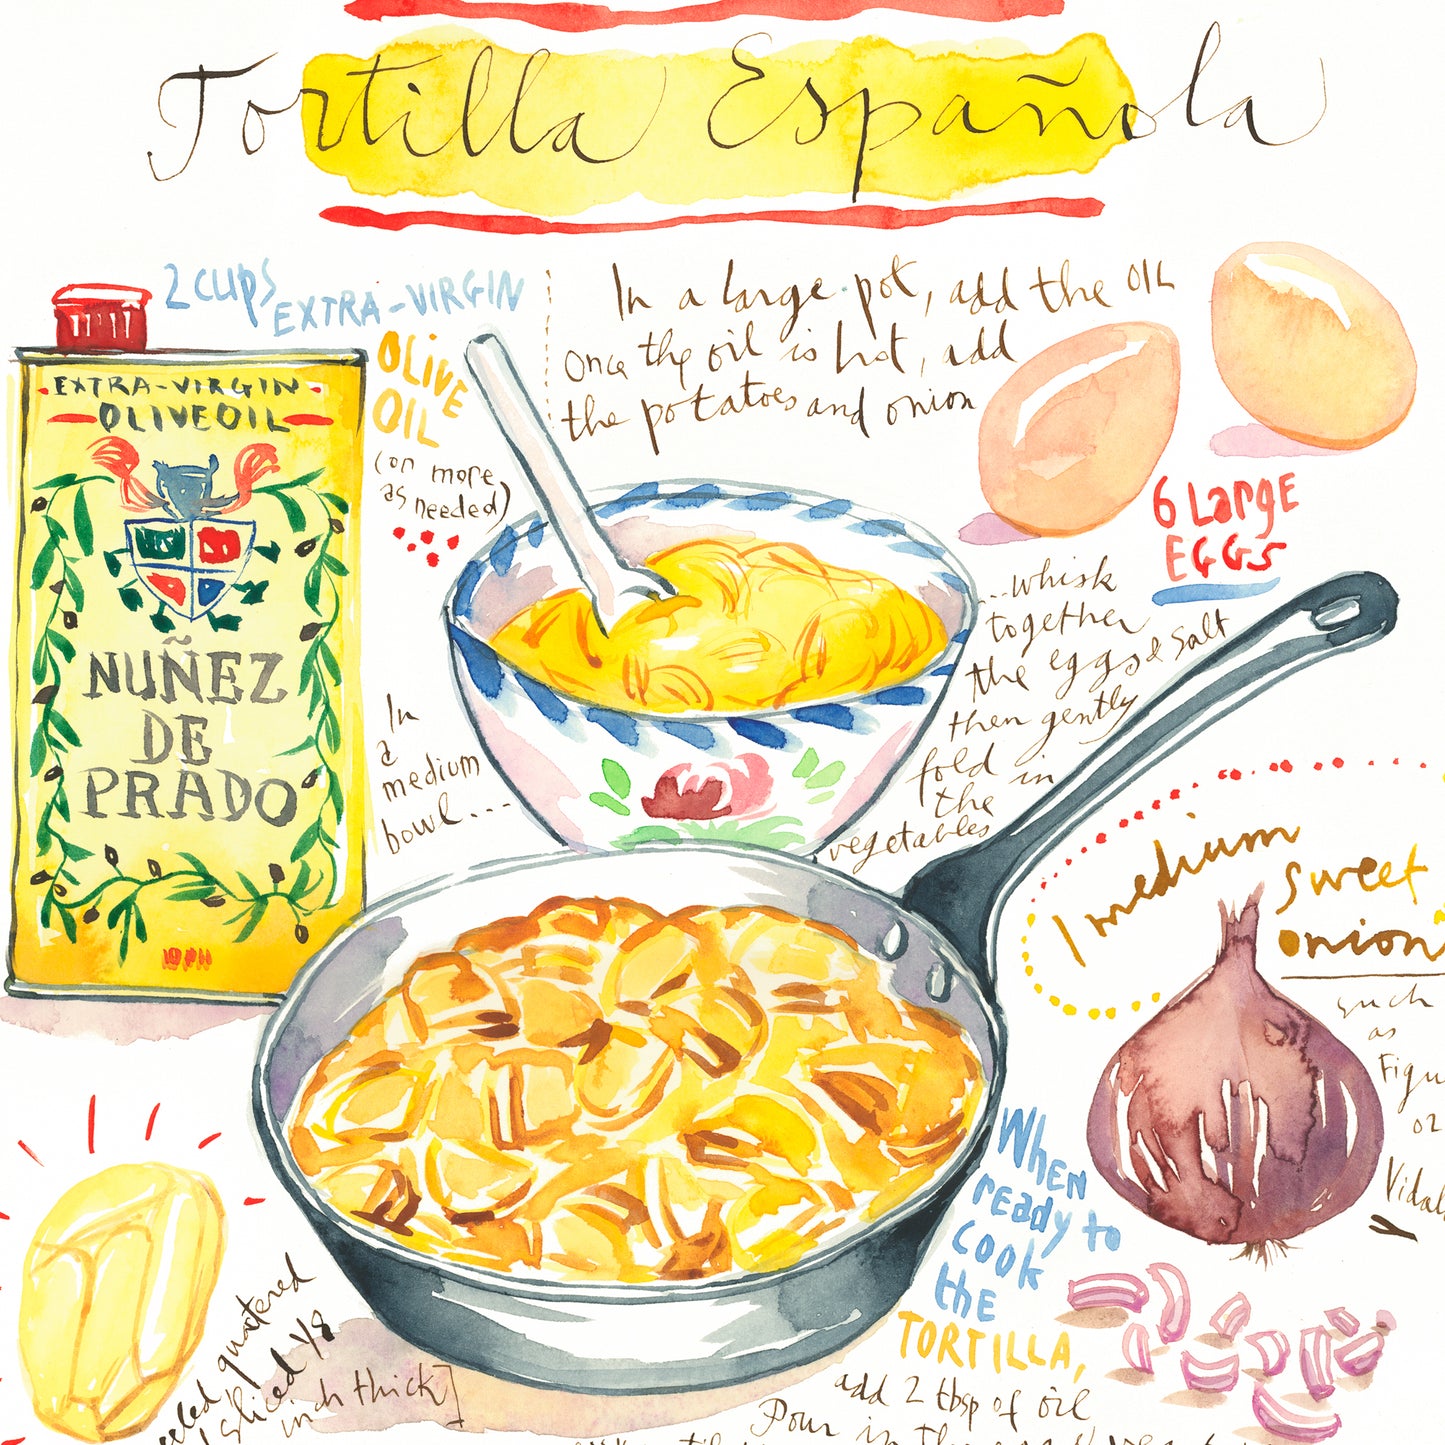 Tortilla Española
2 cups
EXTRA-VIRGIN
OLIVE
OIL
(or more
as needed)
In a large pot, add the OIL
once the oil is hot, add
the potatoes and onion
EXTRA-VIRGIN
OLIVE OIL
NUÑEZ
DE
PRADO
6 Large
EGGS
In
a
medium
bowl...
...whisk
together
the eggs & salt
then gently
fold in
the
vegetables
1 medium
sweet
onion
such
as
Figu
02
Vidal
When
ready to
cook
the
TORTILLA,
add 2 tbsp of oil
Pour in the
eeled quatered
sliced 1/8
inch thick]